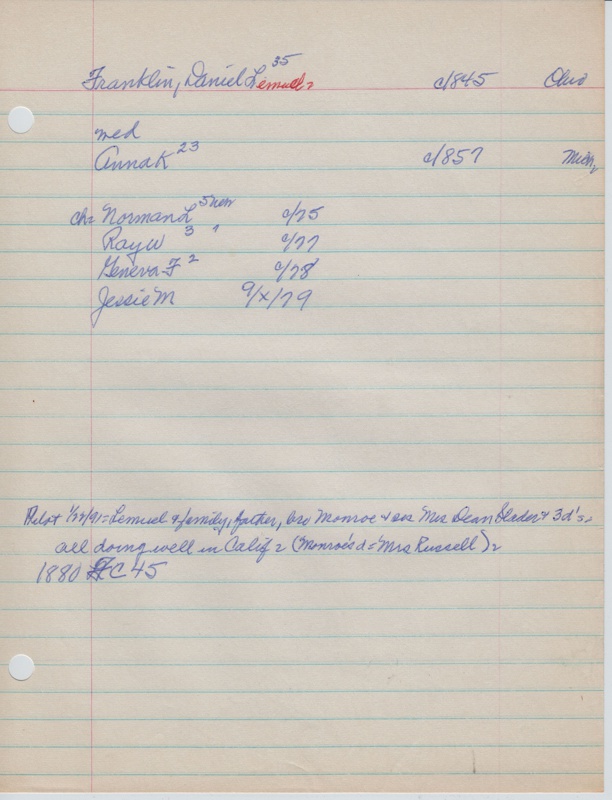 Franklin, Daniel Lemuel 35 c/1845 Ohio
med
Anna K 23 c/1857 Mich
ch= Norman L 5 c/75
Ray W 3 c/77
Geneva F 2 c/78
Jessie M 9/x/79
Pilot 1/22/91= Lemuel & family, father, bro Monroe & sis Mrs Dean & 3 d's=
all doing well in Calif = (Monroe's d= Mrs Russell)
1880 FC 45